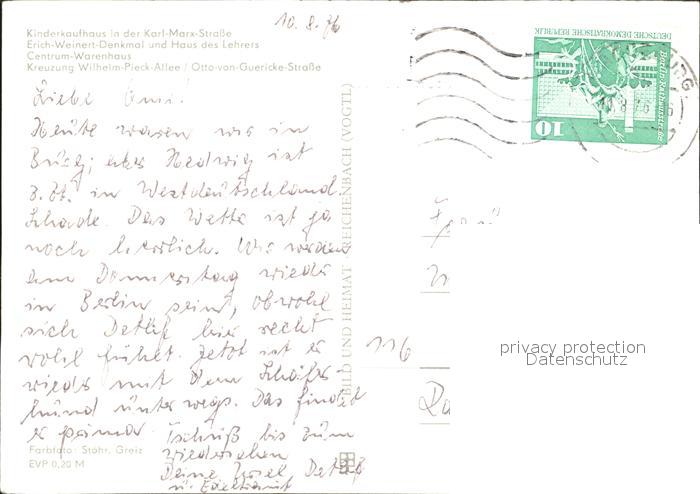 10. 8. 76
Kinderkaufhaus in der Karl-Marx-Straße
Erich-Weinert-Denkmal und Haus des Lehrers
Centrum-Warenhaus
Kreuzung Wilhelm-Pieck-Allee / Otto-von-Guericke-Straße
Liebe Omi!
Heute waren wir in
Burg; aber Hedwig ist
z. Zt. in Westdeutschland.
Schade. Das Wetter ist ja
noch herrlich. Wir werden
am Donnerstag wieder
in Berlin sein, obwohl
sich Detlef hier recht
wohl fühlt. Jetzt ist er
wieder mit dem Schäfer
hund unterwegs. Das findet
er prima. Tschüß bis zum
Wiedersehen
Deine Ursel Detlef
u. Edeltraut
Farbfoto: Stöhr, Greiz
EVP 0,20 M
BILD UND HEIMAT REICHENBACH (VOGTL)
DEUTSCHE DEMOKRATISCHE REPUBLIK
Berlin Rathausstraße
10
Frau
116
privacy protection
Datenschutz